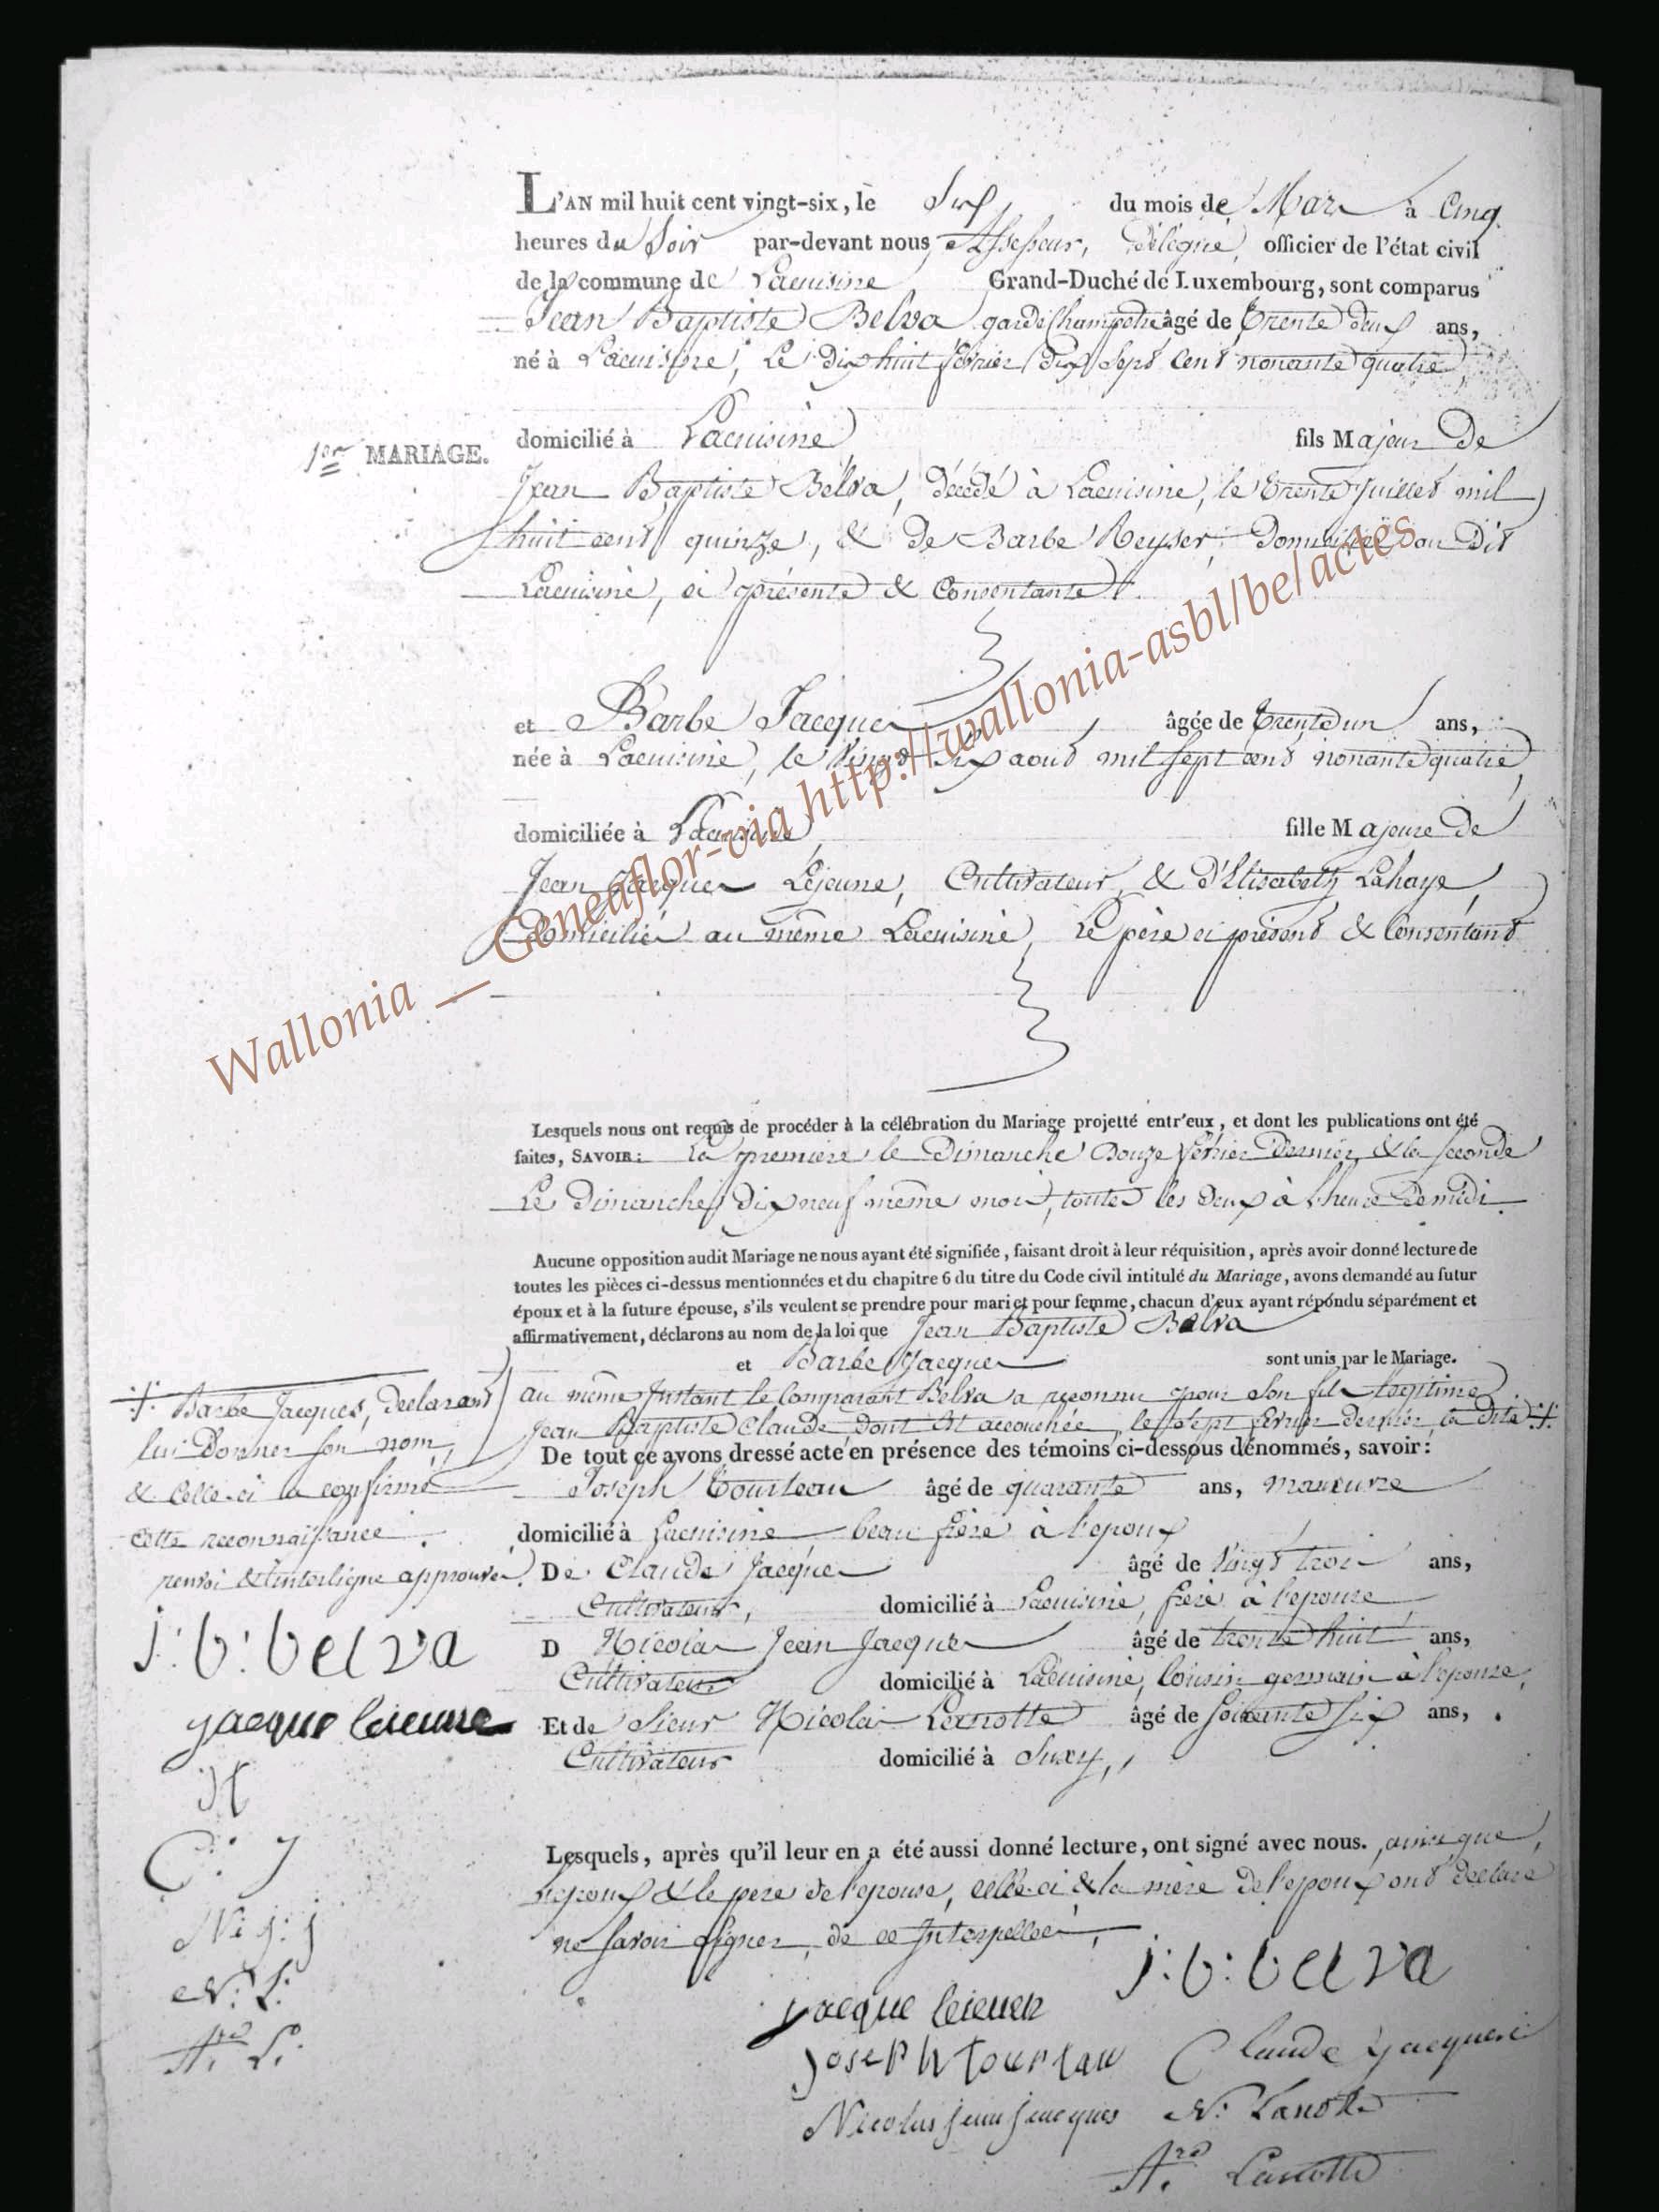 L'AN mil huit cent vingt-six, le Six du mois de Mars à Cinq
heures du Soir par-devant nous Assesseur, Délégué, officier de l'état civil
de la commune de Lacuisine Grand-Duché de Luxembourg, sont comparus
Jean Baptiste Belva garde Champetre âgé de trente deux ans,
né à Lacuisine, Le dix huit février dix Sept Cent nonante quatre
domicilié à Lacuisine, fils Majeur De
1er MARIAGE.
Jean Baptiste Belva, décédé à Lacuisine, le trente juillet mil
huit cent quinze, & de Barbe Reyser, Domiciliée au Dit
Lacuisine, ci présente & Consentante.
et Barbe Jacques âgée de trente un ans,
née à Lacuisine, le Vingt Six aout mil Sept cent nonante quatre,
domiciliée à Lacuisine, fille Majeure De
Jean Jacques Lejeune, Cultivateur, & d'Elisabeth Lahaye,
Domiciliés au même Lacuisine, Le père ci présent & Consentant
Wallonia __ Geneaflor-via http://wallonia-asbl/be/actes
Lesquels nous ont requis de procéder à la célébration du Mariage projetté entr'eux, et dont les publications ont été
faites, SAVOIR: La premiere le Dimanche Douze février Dernier & la seconde
Le Dimanche Dix neuf même mois, toutes les deux à l'heure De midi.
Aucune opposition audit Mariage ne nous ayant été signifiée, faisant droit à leur réquisition, après avoir donné lecture de
toutes les pièces ci-dessus mentionnées et du chapitre 6 du titre du Code civil intitulé du Mariage, avons demandé au futur
époux et à la future épouse, s'ils veulent se prendre pour mari et pour femme, chacun d'eux ayant répondu séparément et
affirmativement, déclarons au nom de la loi que Jean Baptiste Belva
et Barbe Jacques sont unis par le Mariage.
au même Instant le Comparant Belva a reconnu pour Son fils légitime
Jean Baptiste Claude, dont est accouchée, le Sept février dernier, la dite ·/·
·/· Barbe Jacques, Declarant
lui Donner son nom,
& Celle-ci a confirmé
cette reconnaissance.
renvoi & interligne approuvé.
De tout ce avons dressé acte en présence des témoins ci-dessous dénommés, savoir:
Joseph Tourteau âgé de quarante ans, manœuvre
domicilié à Lacuisine, beau frère à l'epoux
De Claude Jacques âgé de Vingt trois ans,
Cultivateur, domicilié à Lacuisine, frère à l'epouse
D Nicolas Jean Jacques âgé de trente huit ans,
Cultivateur domicilié à Lacuisine, Cousin germain à l'epouse,
Et de Sieur Nicolas Lanotte âgé de Soixante Six ans,
Cultivateur domicilié à Suxy,
j:b:belva
jacque leieune
C: J
Ni j: j
N: L:
Ard L:
Lesquels, après qu'il leur en a été aussi donné lecture, ont signé avec nous. ainsi que
l'epoux & le pere de l'epouse, celle-ci & la mère de l'epoux ont declaré
ne savoir signer, de ce Interpellées,
j:b:belva
jacque leieuen
joseph tourtau Claude jacques
Nicolas jean jacques N: Lanotte
Ard Lanotte